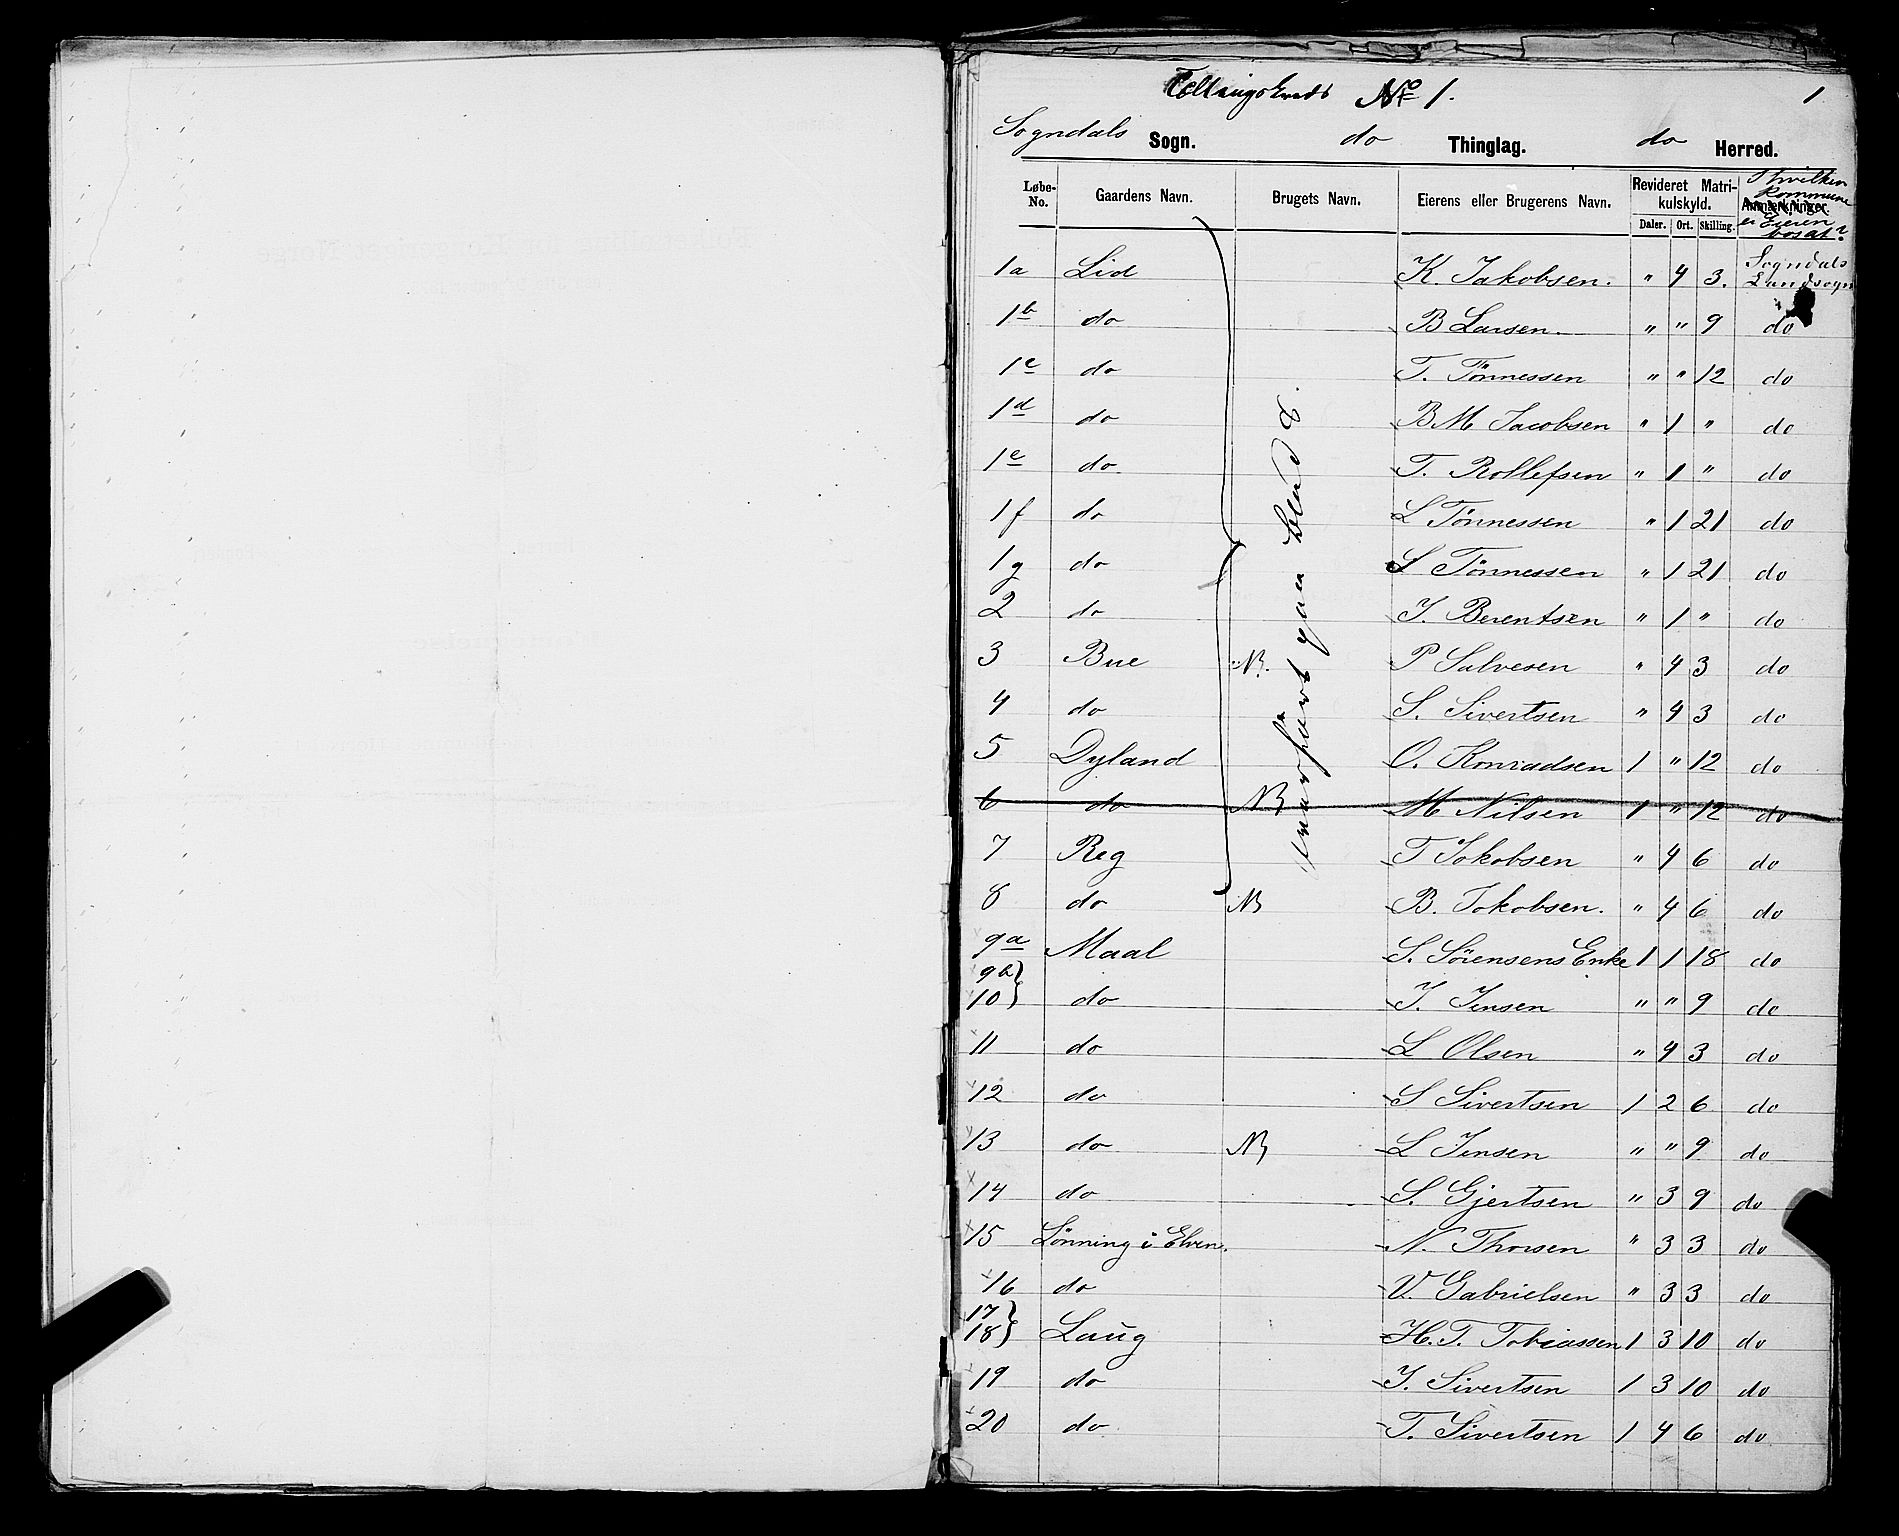 Tellingskreds No 1.
1
Sogndals Sogn. do Thinglag. do Herred.
Løbe-No. Gaardens Navn. Brugets Navn. Eierens eller Brugerens Navn. Revideret Matrikulskyld. Daler. Ort. Skilling. Anmærkninger. I hvilken Kommune er Eieren bosat?
1a Lid K. Jakobsen. " 4 3. Sogndals Landsogn
1b do B Larsen. " " 9 do
1c do T. Tönnessen " " 12 do
1d do B M Jacobsen " 1 " do
1e do. T. Rollefsen " 1 " do
1f do L Tönnessen " 1 21 do
1g do S Tönnessen " 1 21 do
2 do J. Berentsen " 1 " do
3 Bue NB. P Salvesen " 4 3 do
4 do S. Sivertsen " 4 3 do
5 Dyland O. Konradsen 1 " 12 do
6 do NB M Nilsen 1 " 12 do
7 Reg T Jokobsen " 4 6 do
8 do NB B. Jokobsen. " 4 6 do
9a Maal S. Sörensens Enke 1 1 18 do
9b
10 do J. Jensen " " 9 do
11 do L Olsen " 4 3 do
12 do S Sivertsen 1 2 6 do
13 do NB L Jensen " " 9 do
14 do S. Gjertsen " 3 9 do
15 Lönning i Elven. N. Thorsen " 3 3 do
16 do V. Gabrielsen " 3 3 do
17
18 Laug H. T. Tobiassen 1 3 10 do
19 do J. Sivertsen 1 3 10 do
20 do T. Sivertsen 1 4 6 do